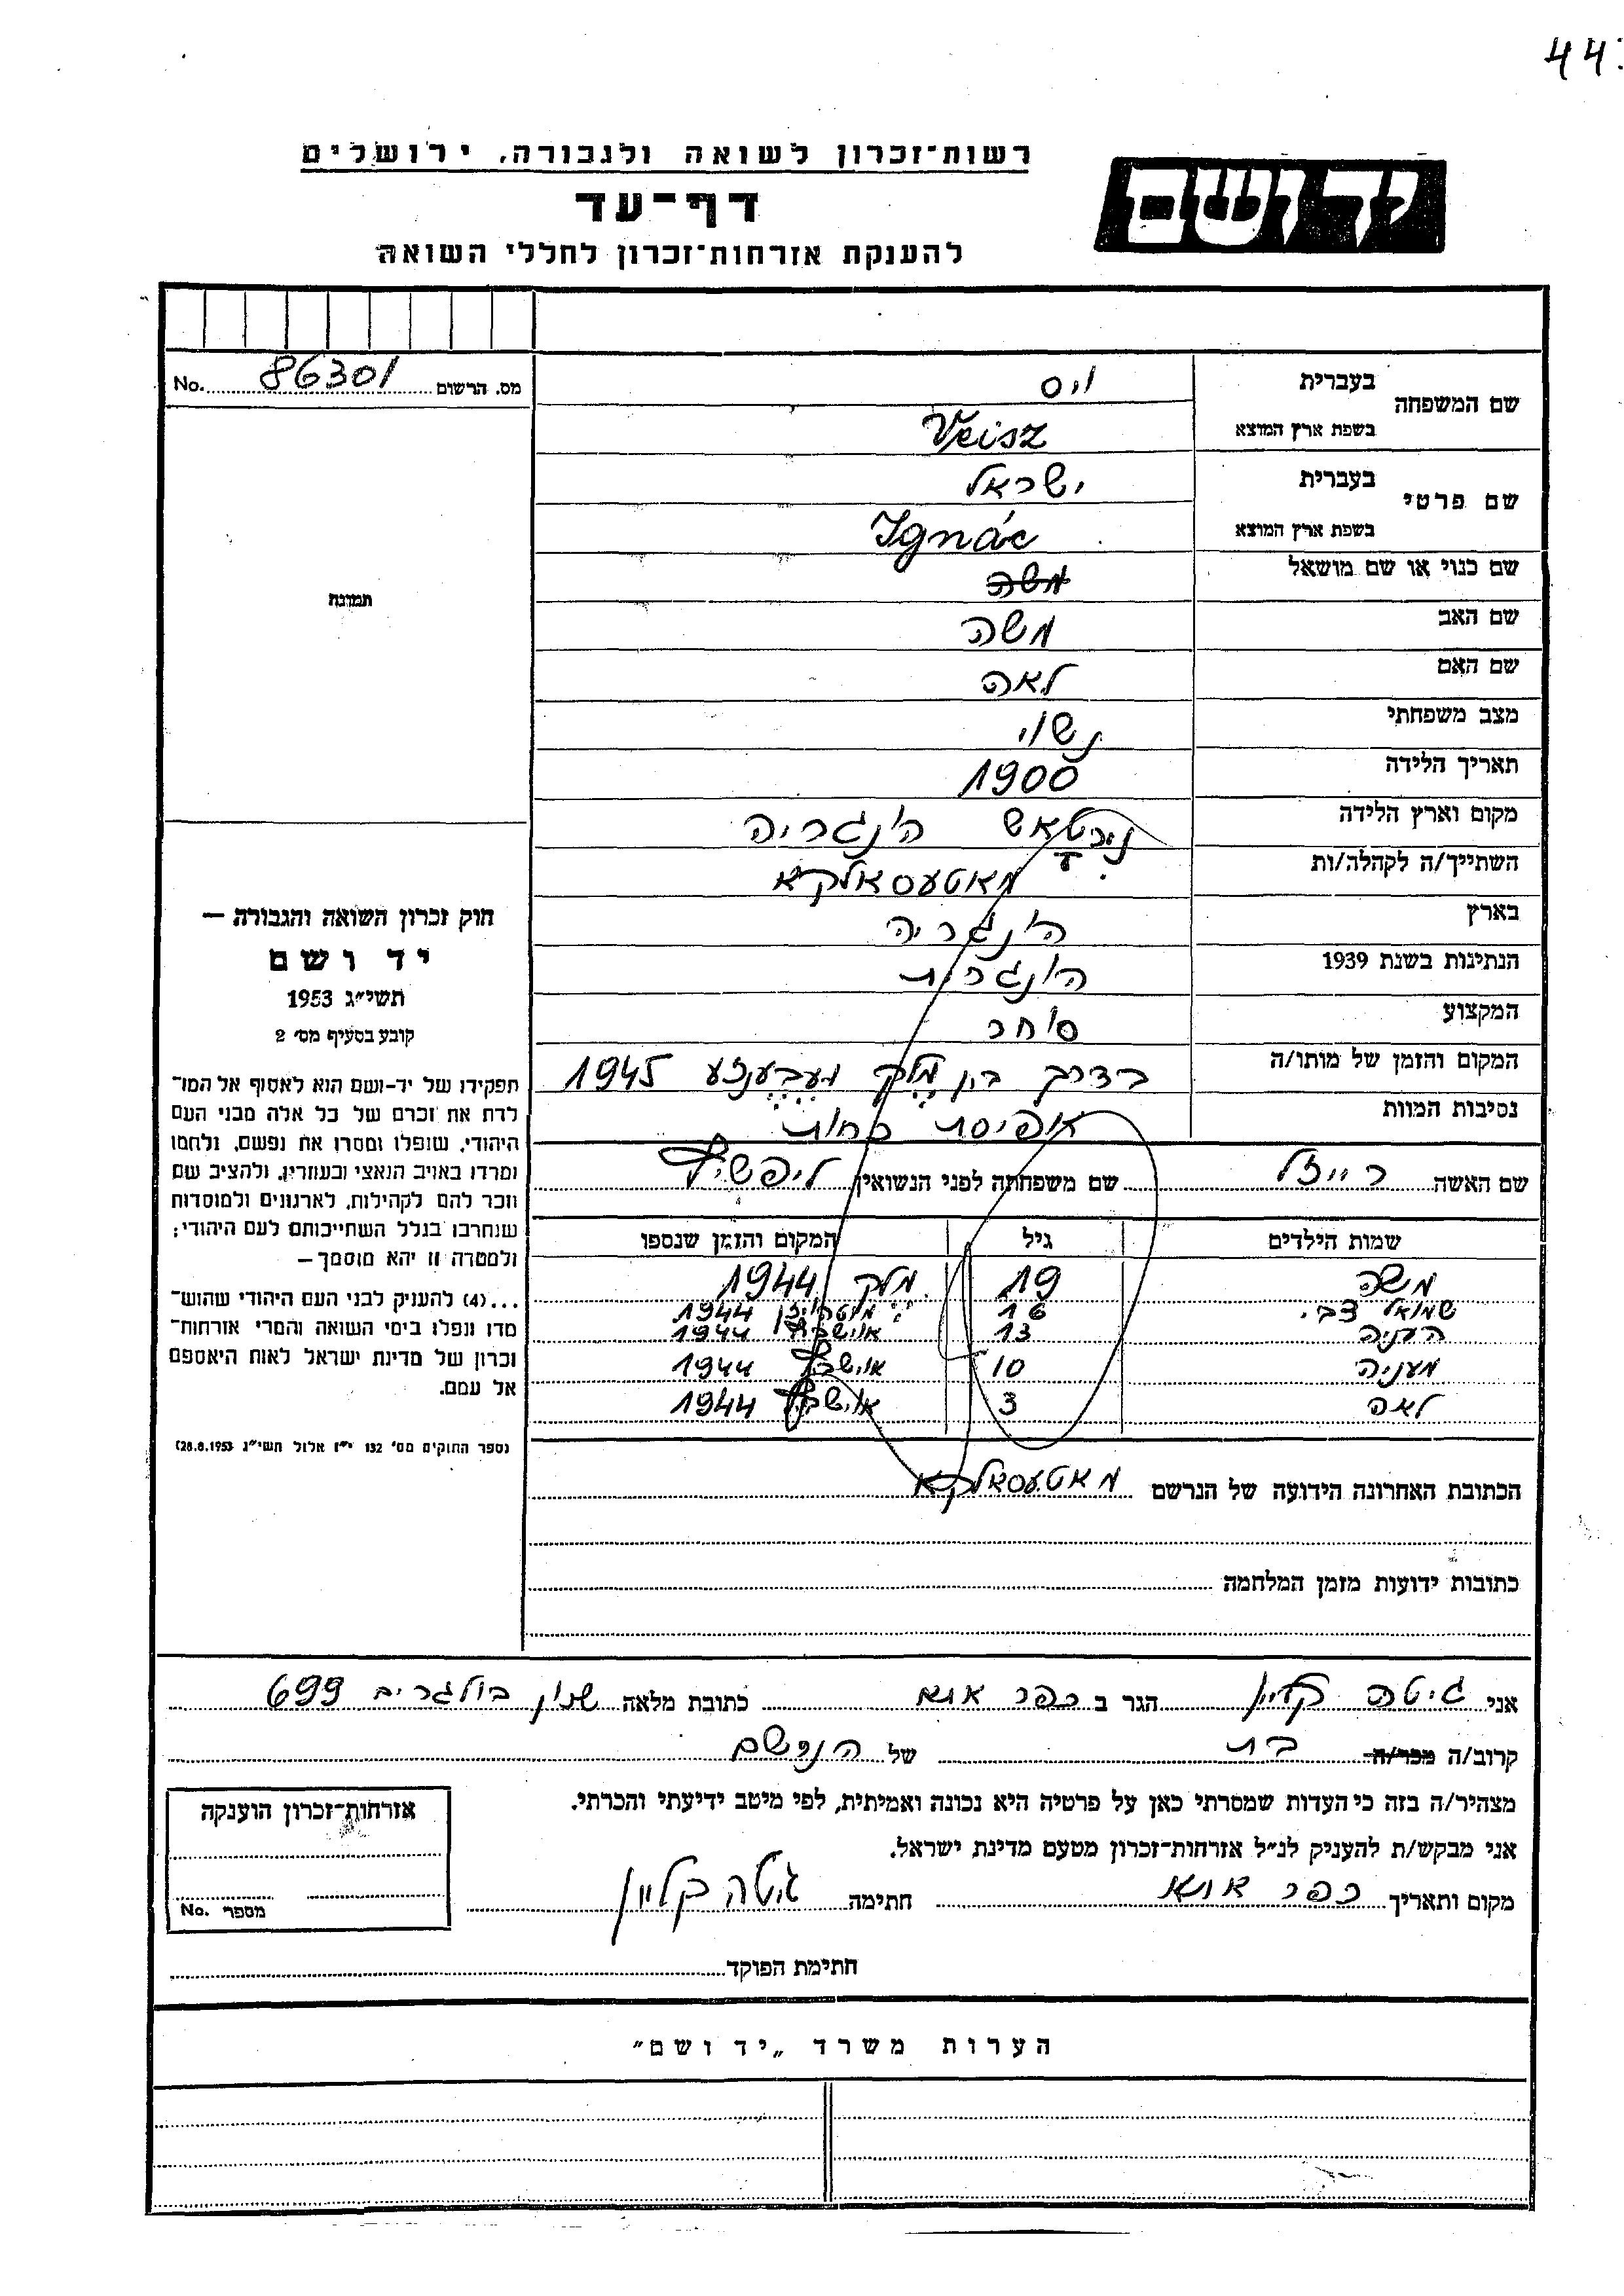 44
רשות־זכרון לשואה ולגבורה, ירושלים
יד ושם
דף־עד
להענקת אזרחות־זכרון לחללי השואה
No. 86301 מס. הרשום
תמונה
חוק זכרון השואה והגבורה —
יד ושם
תשי״ג 1953
קובע בסעיף מס׳ 2
תפקידו של יד-ושם הוא לאסוף אל המו־
לדת את זכרם של כל אלה מבני העם
היהודי, שנפלו ומסרו את נפשם, נלחמו
ומרדו באויב הנאצי ובעוזריו, ולהציב שם
וזכר להם לקהילות, לארגונים ולמוסדות
שנחרבו בגלל השתייכותם לעם היהודי;
ולמטרה זו יהא מוסמך —
...(4) להעניק לבני העם היהודי שהוש־
מדו ונפלו בימי השואה והמרי אזרחות־
זכרון של מדינת ישראל לאות היאספם
אל עמם.
(ספר החוקים מס׳ 132 י״ז אלול תשי״ג 28.8.1953)
שם המשפחה בעברית ויס
בשפת ארץ המוצא Veisz
שם פרטי בעברית ישראל
בשפת ארץ המוצא Ignác
שם כנוי או שם מושאל משה
שם האב משה
שם האם לאה
מצב משפחתי נשוי
תאריך הלידה 1900
מקום וארץ הלידה הונגריה
השתייך/ה לקהלה/ות מאטעסאלקא
בארץ הונגריה
הנתינות בשנת 1939 הונגרית
המקצוע סוחר
המקום והזמן של מותו/ה בדרך בין מלק 1945
נסיבות המוות אפיסת כחות
שם האשה רייזל שם משפחתה לפני הנשואין ליפשיץ
שמות הילדים גיל המקום והזמן שנספו
משה 19 מלק 1944
שמואל צבי 16 1944
העניה 13 אושביץ 1944
מעניה 10 אושביץ 1944
לאה 3 אושביץ 1944
הכתובת האחרונה הידועה של הנרשם מאטעסאלקא
כתובות ידועות מזמן המלחמה
אני גיטה קליין הגר ב כפר אתא כתובת מלאה שכון בולגרים 699
קרוב/ה מכר/ה בת של הנרשם
מצהיר/ה בזה כי העדות שמסרתי כאן על פרטיה היא נכונה ואמיתית, לפי מיטב ידיעתי והכרתי.
אני מבקש/ת להעניק לנ״ל אזרחות־זכרון מטעם מדינת ישראל.
מקום ותאריך כפר אתא חתימה גיטה קליין
אזרחות־זכרון הוענקה
מספר No.
חתימת הפוקד
הערות משרד „יד ושם״